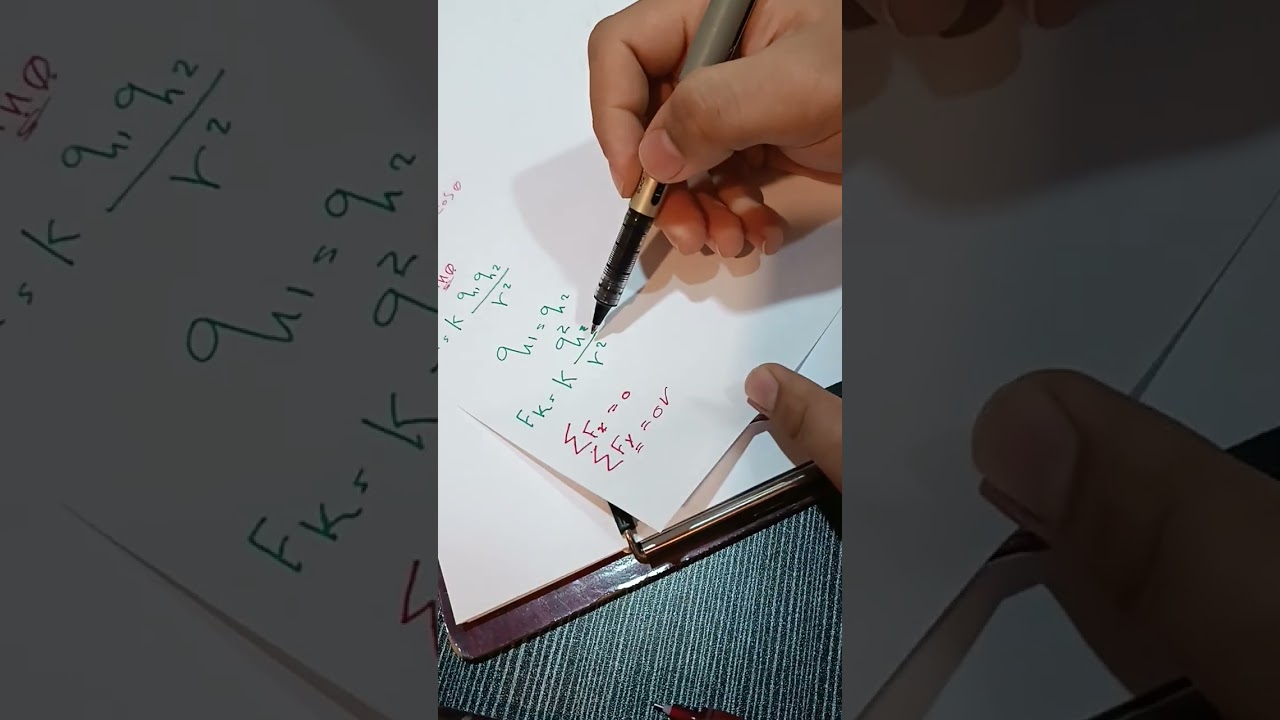 cosθ
= k q₁q₂/r²
q₁ = q₂
Fk = k q²/r²
ΣFx = 0
ΣFy = 0